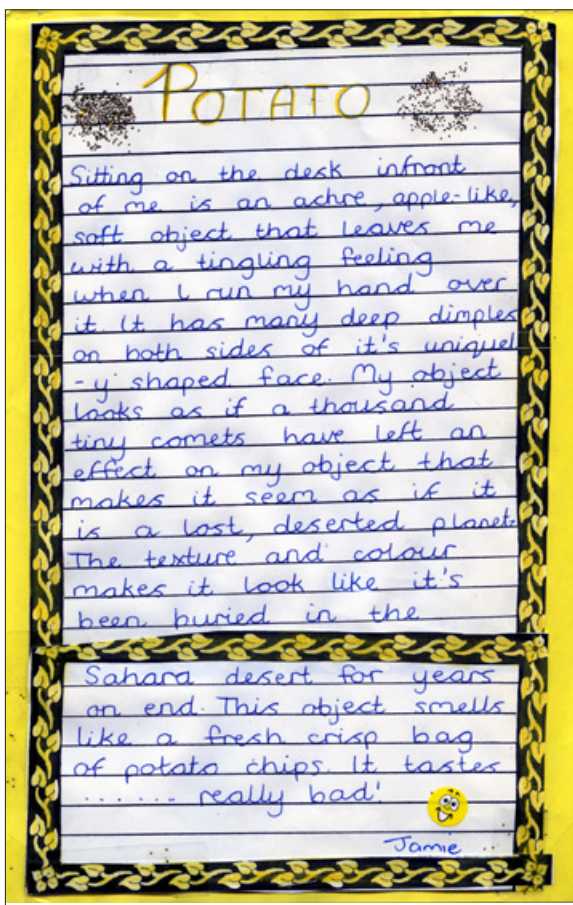 POTATO
Sitting on the desk infront
of me is an achre, apple-like,
soft object that leaves me
with a tingling feeling
when I run my hand over
it. It has many deep dimples
on both sides of it's uniquel
-y shaped face. My object
looks as if a thousand
tiny comets have left an
effect on my object that
makes it seem as if it
is a lost, deserted planet.
The texture and colour
makes it look like it's
been buried in the
Sahara desert for years
on end. This object smells
like a fresh crisp bag
of potato chips. It tastes
...... really bad!
Jamie